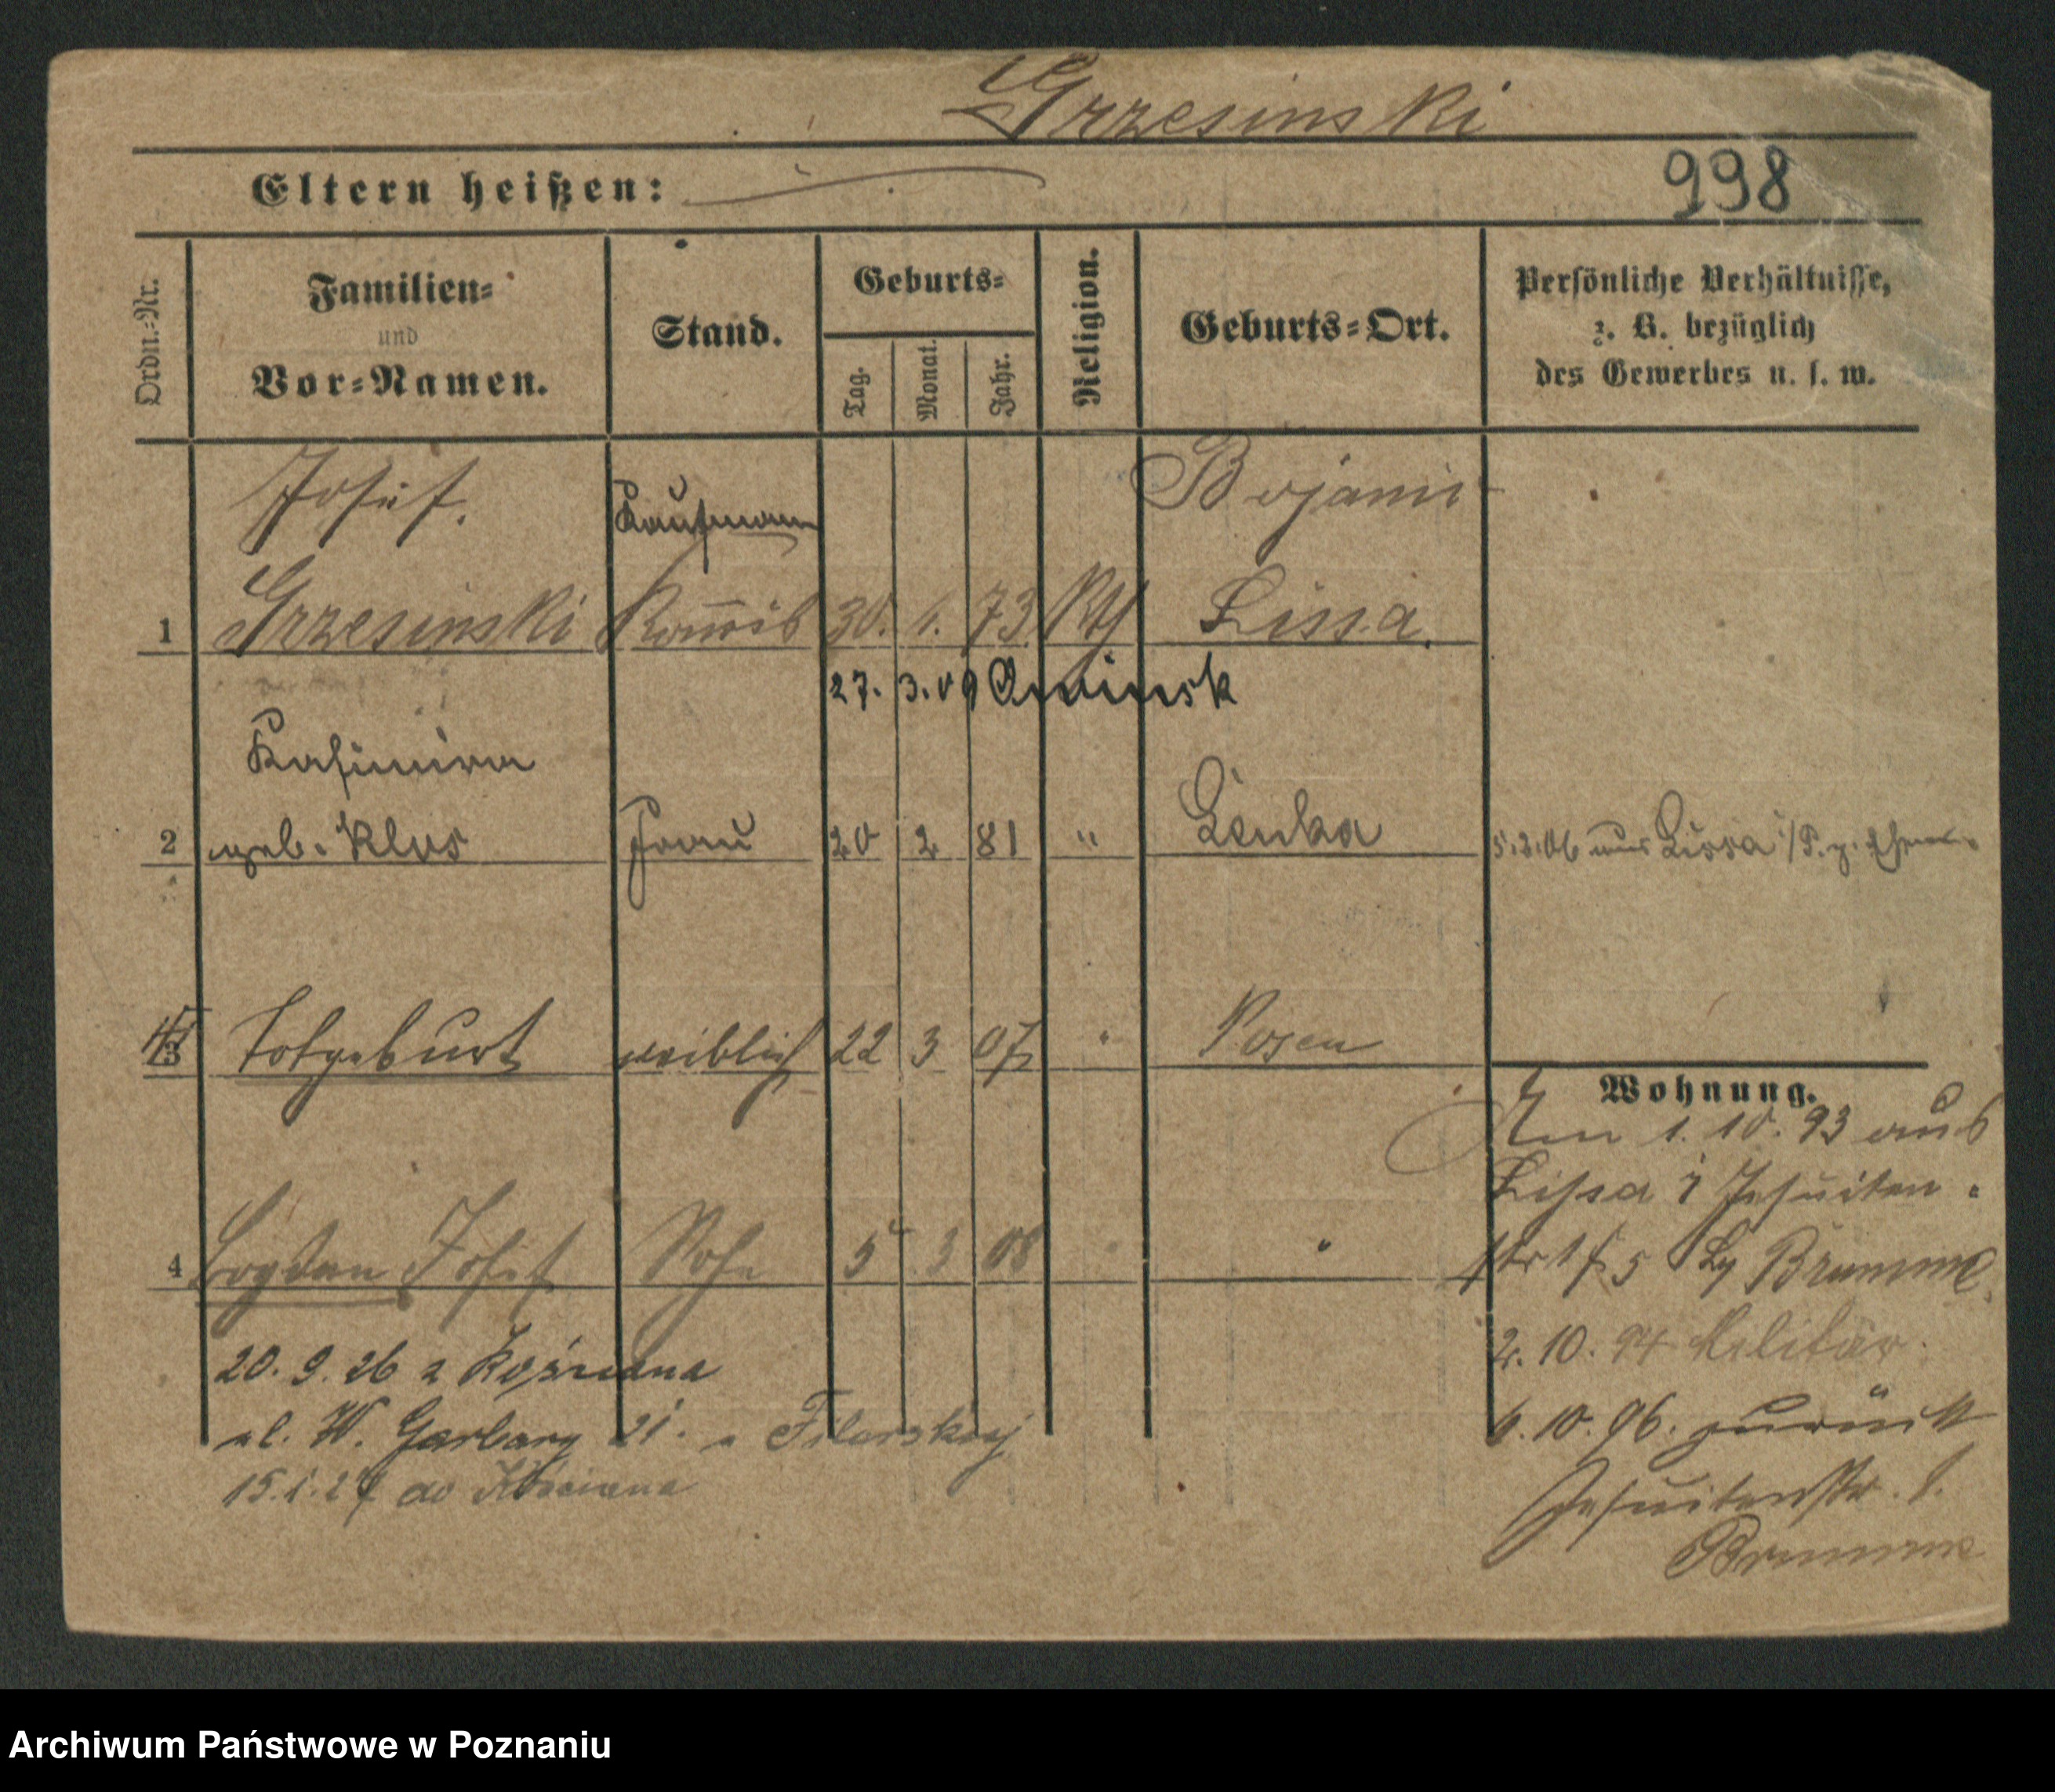 Grzesinski
Eltern heißen:
998
Ordn.-Nr.
Familien-
und
Vor-Namen.
Stand.
Geburts-
Tag.
Monat.
Jahr.
Religion.
Geburts-Ort.
Persönliche Verhältnisse,
z. B. bezüglich
des Gewerbes u. s. w.
Josef.
Kaufmann
1 Grzesinski 30. 73 Kth Lissa.
27. 3. 09
Kasimira
2 geb. Klos Frau 20 2 81 " Lenka 5.2.06 aus Lissa
3 Totgeburt weiblich 22 3 07 " Posen
Wohnung.
Am 1. 10. 93 aus
Lissa Jesuiten
4 Bogdan Josef Sohn 5 3 08 " "
str Brumme
2. 10. 94 Militär.
6. 10. 96. zurück
Jesuitenstr.
Brumme
20. 9. 26 z Kościana
ul. W. Garbary 21.
15.1.27 do Kościana
Archiwum Państwowe w Poznaniu